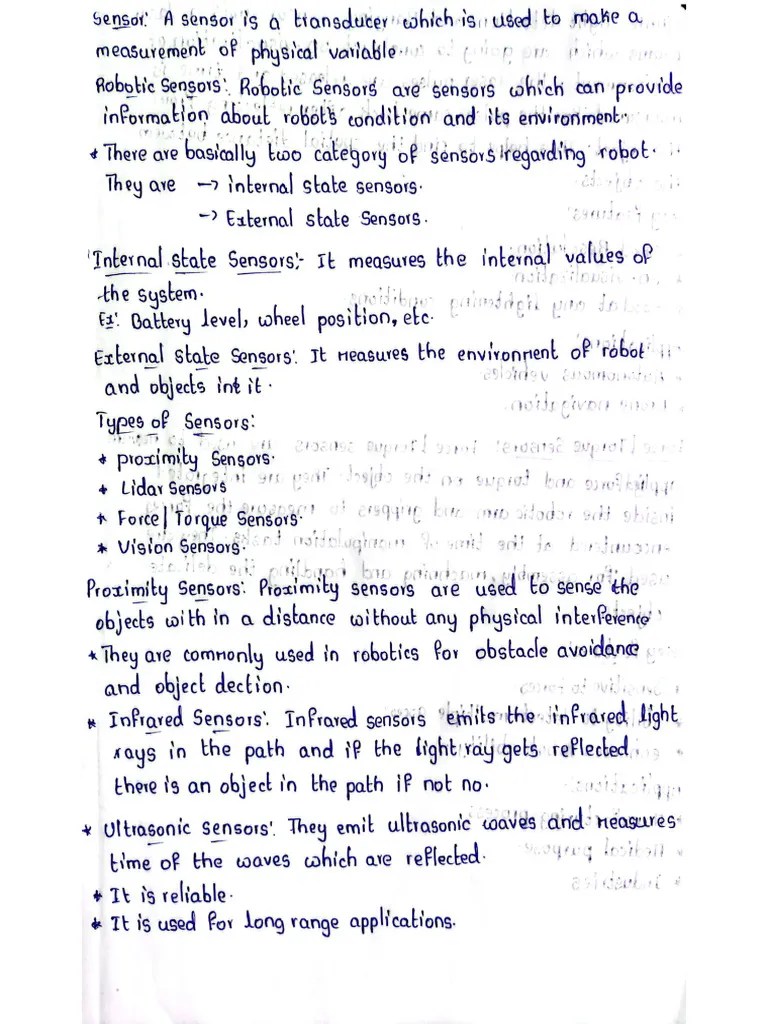 Sensor: A sensor is a transducer which is used to make a
measurement of physical variable.
Robotic Sensors: Robotic Sensors are sensors which can provide
information about robot's condition and its environment.
* There are basically two category of sensors regarding robot.
They are → internal state sensors.
→ External state Sensors.
Internal state Sensors:- It measures the internal values of
the system.
Ex: Battery level, wheel position, etc.
External state Sensors: It Measures the environment of robot
and objects int it.
Types of Sensors:
* proximity Sensors.
* Lidar Sensors
* Force/Torque Sensors.
* Vision Sensors.
Proximity Sensors: Proximity sensors are used to sense the
objects with in a distance without any physical interference
* They are commonly used in robotics for obstacle avoidance
and object dection.
* Infrared Sensors: Infrared sensors emits the infrared light
rays in the path and if the light ray gets reflected
there is an object in the path if not no.
* Ultrasonic sensors: They emit ultrasonic waves and Measures
time of the waves which are reflected.
* It is reliable.
* It is used for long range applications.